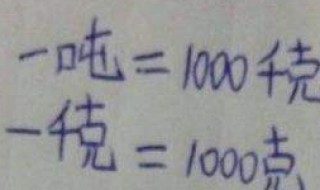 一吨=1000千克
一千克=1000克